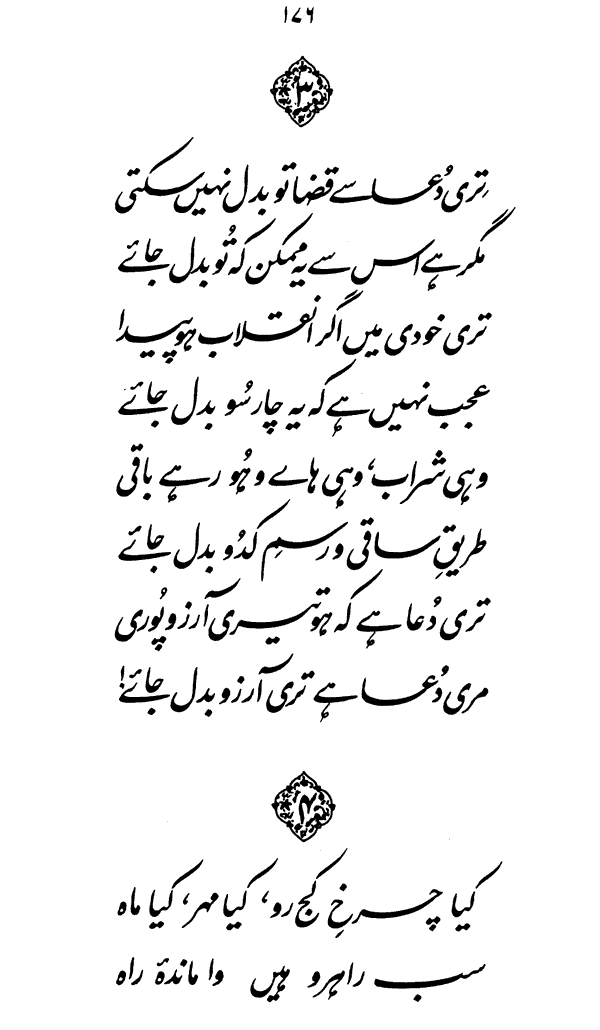 ۱۷۶
۳
تِری دُعا سے قضا تو بدل نہیں سکتی
مگر ہے اس سے یہ ممکن کہ تُو بدل جائے
تری خودی میں اگر انقلاب ہو پیدا
عجب نہیں ہے کہ یہ چار سُو بدل جائے
وہی شراب، وہی ہاے و ہُو رہے باقی
طریقِ ساقی و رسمِ کدُو بدل جائے
تری دُعا ہے کہ ہو تیری آرزو پُوری
مری دُعا ہے تری آرزو بدل جائے!
۴
کیا چرخِ کج رو، کیا مہر، کیا ماہ
سب راہرو ہیں واماندۂ راہ